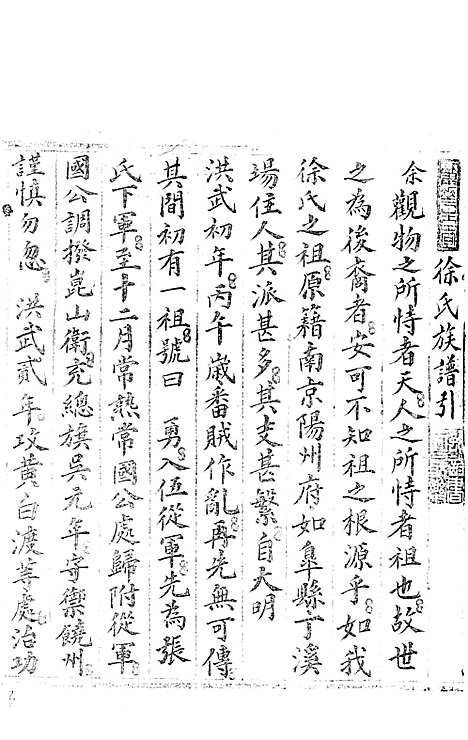 徐氏族譜引
余觀物之所恃者天人之所恃者祖也故世
之為後裔者安可不知祖之根源乎如我
徐氏之祖原籍南京陽州府如臯縣丁溪
場住人其派甚多其支甚繁自大明
洪武初年丙午歲番賊作亂再先無可傳
其間初有一祖號曰 勇入伍從軍先為張
氏下軍至十二月常熟常國公處歸附從軍
國公調撥崑山衛充總旗吳元年守禦饒州
謹慎勿忽 洪武貳年攻黃白渡等處治功